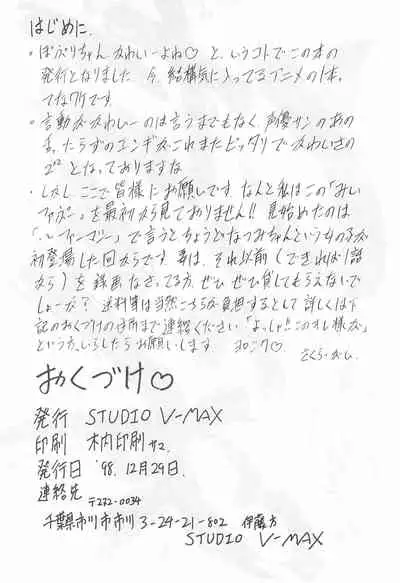 はじめに.
・ぽぷりちゃん かわいーよね♡ と、いうコトでこの本の
発行となりました 今、結構気に入ってるアニメの1本。
てなワケです。
・言動がかわいーのは言うまでもなく、声優サンのあの
舌たらずのエンギがこれまたピッタリでかわいさの
2² となっておりますな
・しかし ここで皆様に お願いです なんと私はこの「
」を最初から見ておりません!! 見始めたのは
で言うとちょうどなつみちゃんというもの子が
初登場した回からです。 実は、それ以前(できれば1話
から)を録画なさってる方、ぜひ ぜひ貸してもらえないで
しょーか? 送料等は当然こちらが負担するとして 詳しくは下
記のおくづけの住所まで連絡ください 「よっしゃ!!このオレ様が」
という方、いらしたら お願いします ヨロシク♡.
おくづけ♡
発行 STUDIO V-MAX
印刷 木内印刷サマ.
発行日 '98. 12月29日.
連絡先
〒272-0034
千葉県市川市市川 3-24-21-802 伊藤方
STUDIO V-MAX